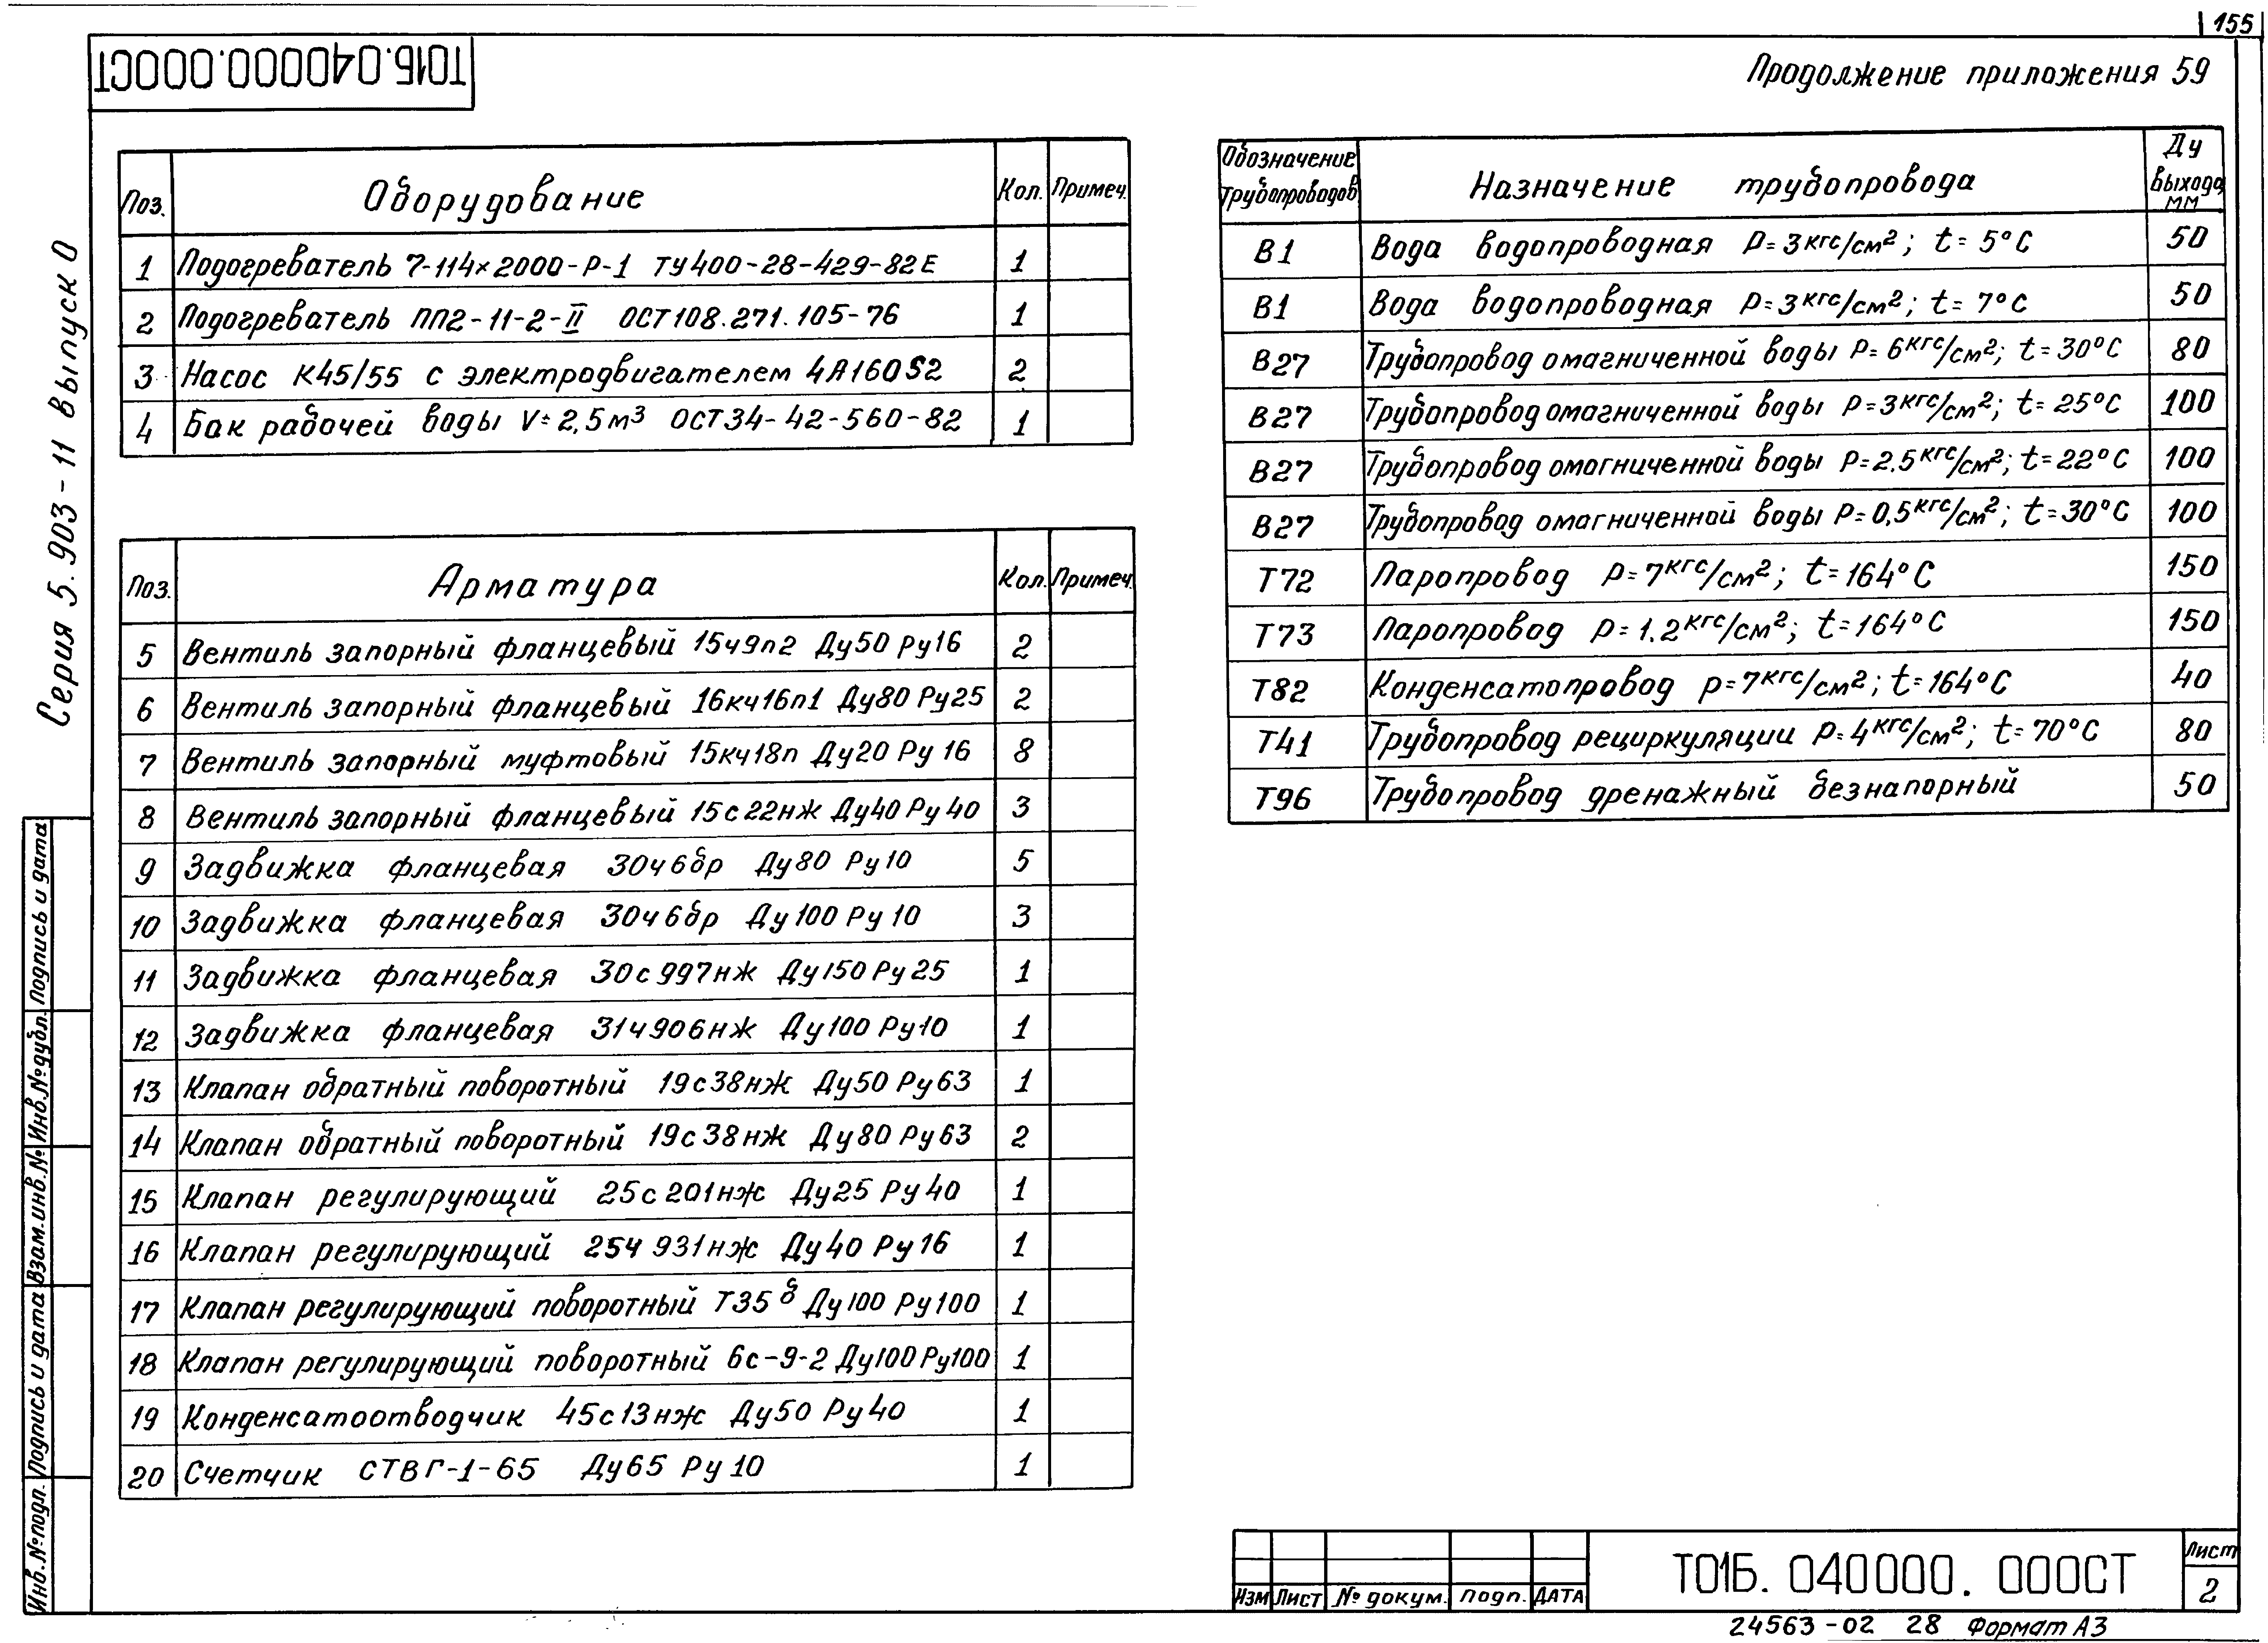 155
Т01Б.040000.000СТ
Продолжение приложения 59
Серия 5.903-11 Выпуск 0
Поз. Оборудование Кол. Примеч.
1 Подогреватель 7-114×2000-Р-1 ТУ400-28-429-82Е 1
2 Подогреватель ПП2-11-2-II ОСТ108.271.105-76 1
3 Насос К45/55 с электродвигателем 4А160S2 2
4 Бак рабочей воды V=2,5м³ ОСТ34-42-560-82 1
Поз. Арматура Кол. Примеч.
5 Вентиль запорный фланцевый 15ч9п2 Ду50 Ру16 2
6 Вентиль запорный фланцевый 16кч16п1 Ду80 Ру25 2
7 Вентиль запорный муфтовый 15кч18п Ду20 Ру 16 8
8 Вентиль запорный фланцевый 15с22нж Ду40 Ру40 3
9 Задвижка фланцевая 30ч6бр Ду80 Ру10 5
10 Задвижка фланцевая 30ч6бр Ду100 Ру10 3
11 Задвижка фланцевая 30с997нж Ду150 Ру25 1
12 Задвижка фланцевая 31ч906нж Ду100 Ру10 1
13 Клапан обратный поворотный 19с38нж Ду50 Ру63 1
14 Клапан обратный поворотный 19с38нж Ду80 Ру63 2
15 Клапан регулирующий 25с201нж Ду25 Ру40 1
16 Клапан регулирующий 25ч931нж Ду40 Ру16 1
17 Клапан регулирующий поворотный Т35б Ду100 Ру100 1
18 Клапан регулирующий поворотный 6с-9-2 Ду100 Ру100 1
19 Конденсатоотводчик 45с13нж Ду50 Ру40 1
20 Счетчик СТВГ-1-65 Ду65 Ру10 1
Обозначение Трубопроводов Назначение трубопровода Ду Выхода, мм
В1 Вода водопроводная Р=3кгс/см²; t=5°С 50
В1 Вода водопроводная Р=3кгс/см²; t=7°С 50
В27 Трубопровод омагниченной воды Р=6кгс/см²; t=30°С 80
В27 Трубопровод омагниченной воды Р=3кгс/см²; t=25°С 100
В27 Трубопровод омагниченной воды Р=2.5кгс/см²; t=22°С 100
В27 Трубопровод омагниченной воды Р=0,5кгс/см²; t=30°С 100
Т72 Паропровод Р=7кгс/см²; t=164°С 150
Т73 Паропровод Р=1.2кгс/см²; t=164°С 150
Т82 Конденсатопровод Р=7кгс/см²; t=164°С 40
Т41 Трубопровод рециркуляции Р=4кгс/см²; t=70°С 80
Т96 Трубопровод дренажный безнапорный 50
Инв.№подл. Подпись и дата Взам.инв.№ Инв.№дубл. Подпись и дата
Изм Лист № докум. Подп. ДАТА
Т01Б. 040000. 000СТ
Лист
2
24563-02 28 Формат А3